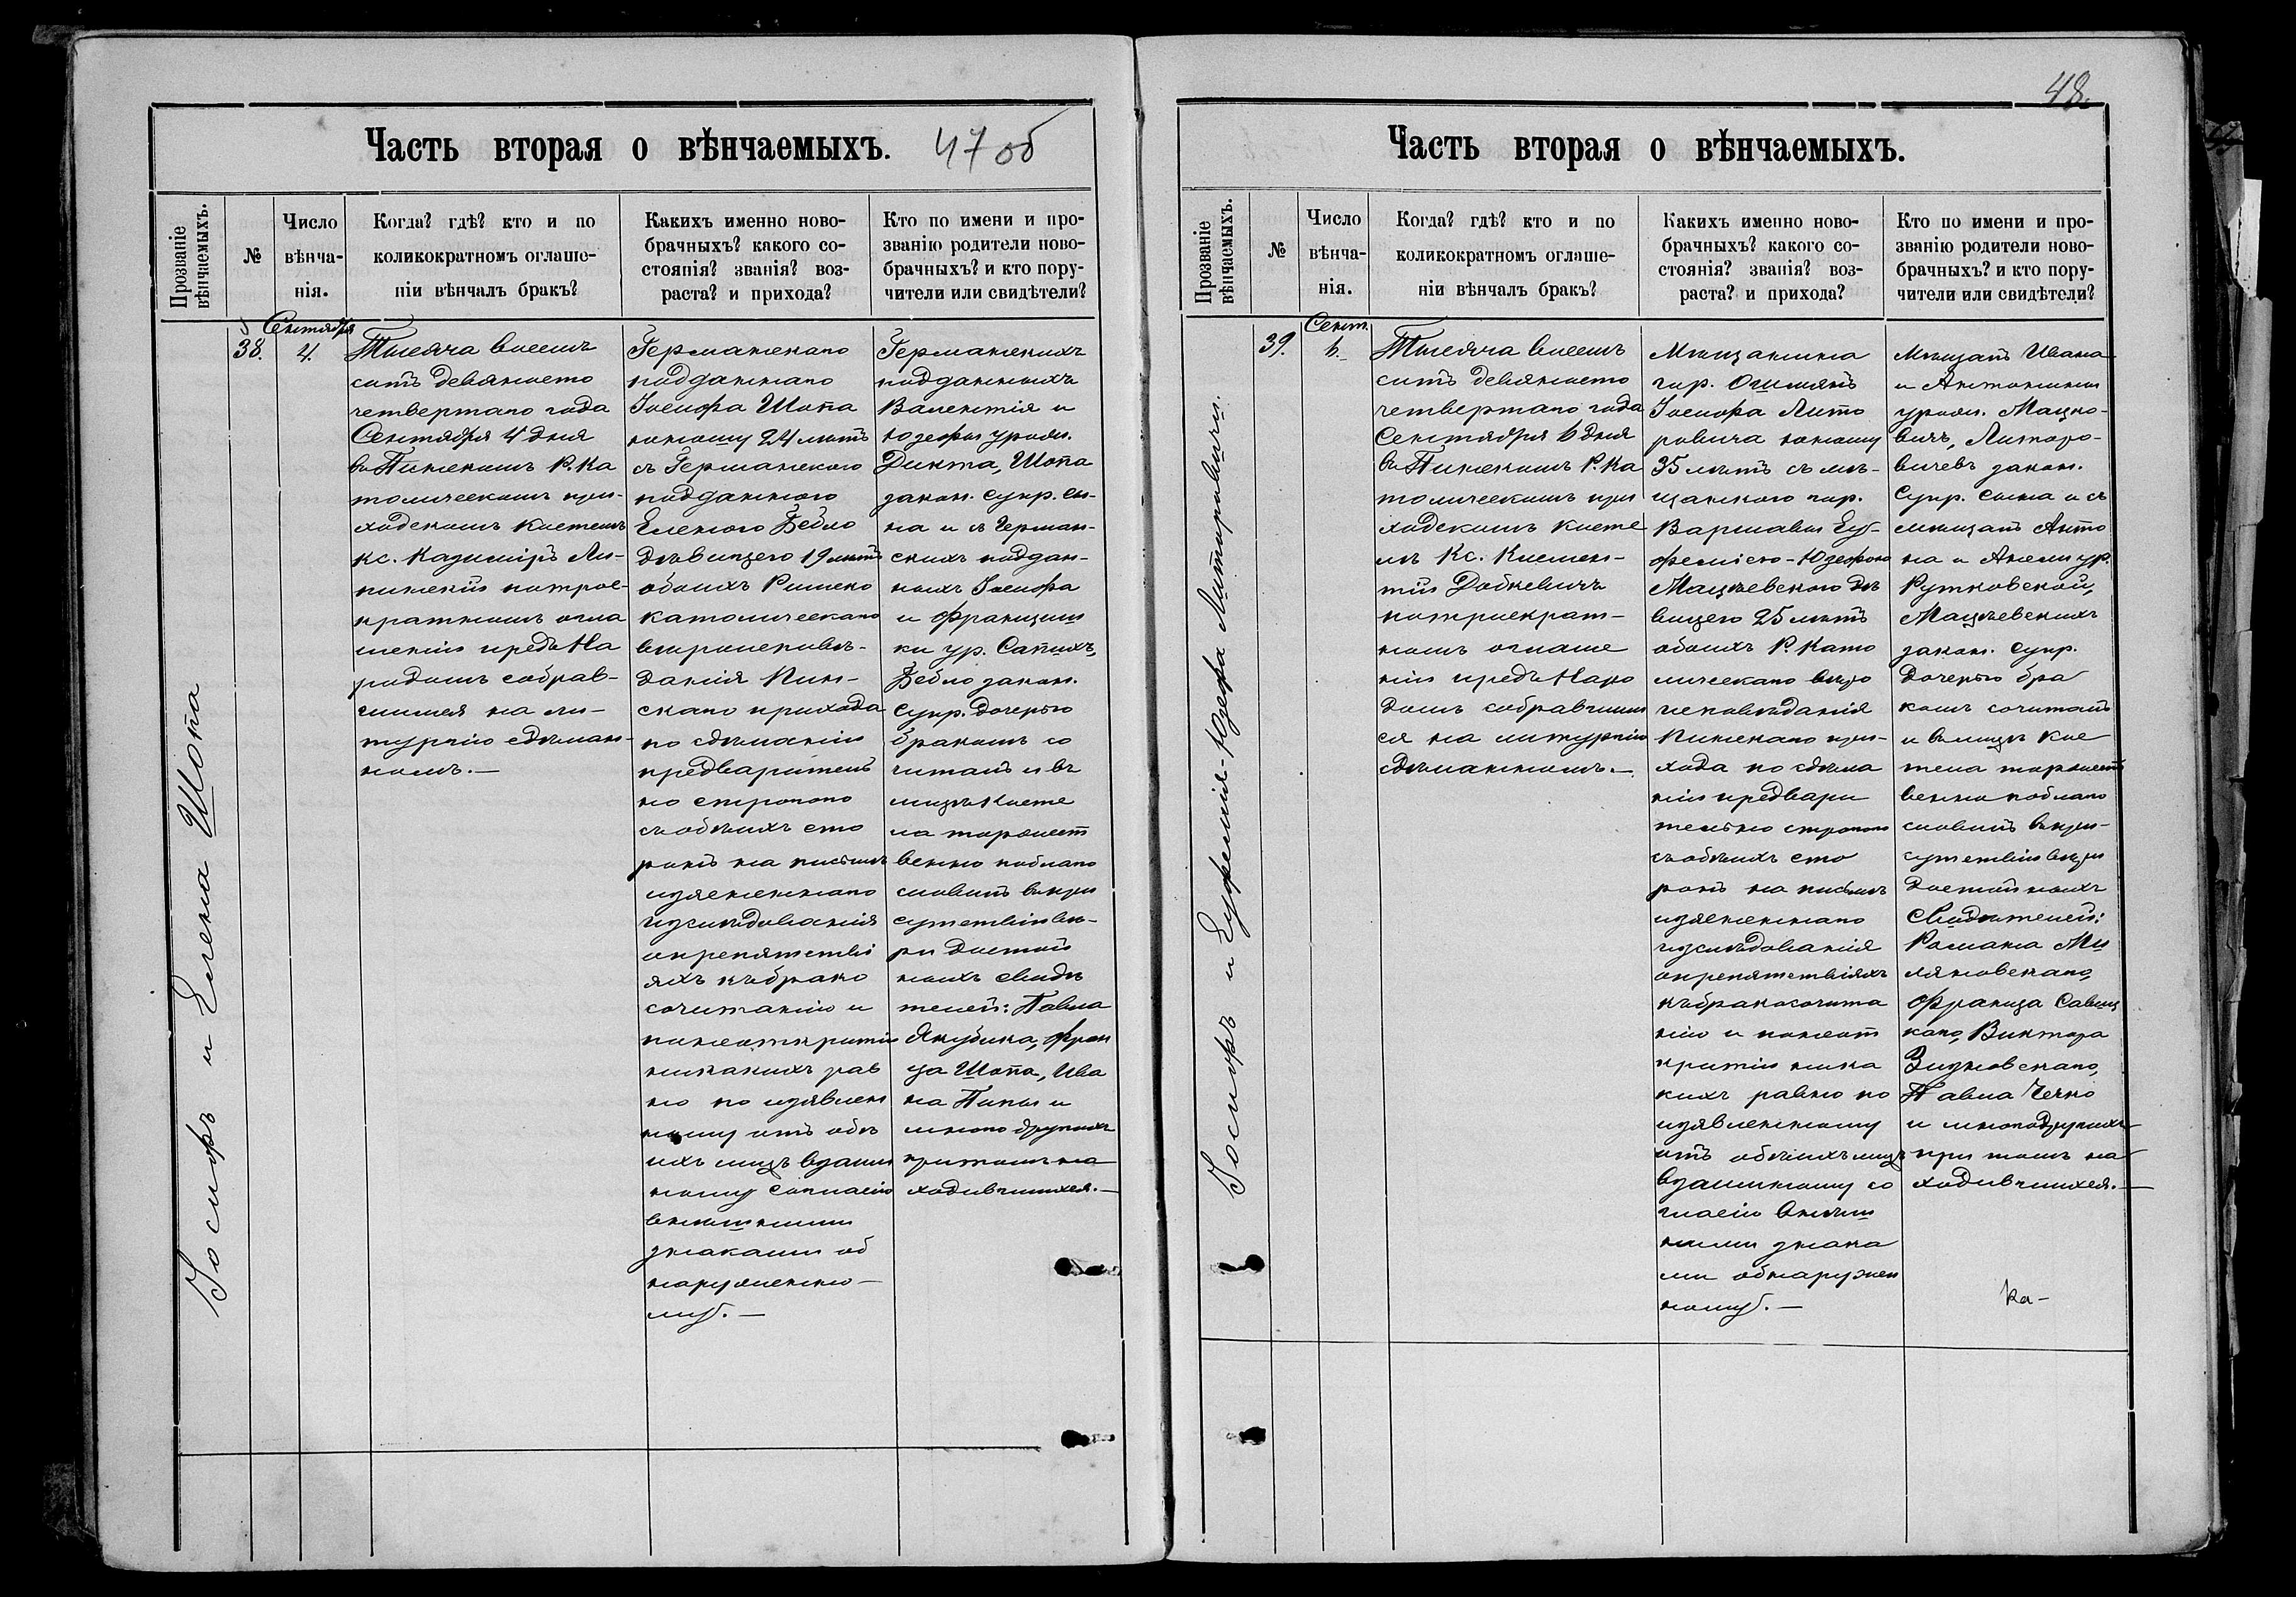 Часть вторая о вѣнчаемыхъ. 47 об
Прозваніе вѣнчаемыхъ.
№
Число вѣнча-
нія.
Когда? гдѣ? кто и по
коликократномъ оглаше-
ніи вѣнчалъ бракъ?
Какихъ именно ново-
брачныхъ? какого со-
стоянія? званія? воз-
раста? и прихода?
Кто по имени и про-
званію родители ново-
брачныхъ? и кто пору-
чители или свидѣтели?
Іосифъ и Елена Шопа
38.
Сентября
4.
Тысяча восемь
сотъ девяносто
четвертаго года
Сентября 4 дня
въ Пинскомъ Р. Ка
толическомъ при-
ходскомъ костелѣ
Кс. Казиміръ Ли-
пинскій по трое-
кратномъ огла
шеніи предъ На
родомъ собрав-
шимся на ли-
тургію сдѣлан-
номъ.—
Германскаго
подданнаго
Іосифа Шопа
юношу 24 лѣтъ
съ Германскою
подданною
Еленою Бебло
дѣвицею 19 лѣтъ
обоихъ Римско
католическаго
вѣроисповѣ-
данія Пин-
скаго прихода
по сдѣланіи
предваритель
но строгого
съ обѣихъ сто
ронъ на письмѣ
изясненнаго
изслѣдованія
о препятстві
яхъ къ брако
сочитанію и
по неоткрытіи
никакихъ рав
но по изявлен
ному отъ обѣ
ихъ лицъ взаим
ному согласію
внѣшними
знаками об
наруженно-
му.—
Германскихъ
подданныхъ
Валентія и
Юзефы урожд.
Дикта, Шопа
закон. супр. сы-
на и съ Герман-
скихъ поддан-
ныхъ Іосифа
и Францишки
ки ур. Сапихъ,
Бебло закон.
супр. дочерью
бракомъ со
читалъ и въ
лицѣ Косте
ла торжест
венно поблаго
словилъ въ при
сутствіи вѣ-
ры достой
ныхъ свидѣ
телей: Павла
Якубика, Фран
ца Шопа, Ива
на Пипы и
много другихъ
при томъ на
ходившихся.—
48.
Часть вторая о вѣнчаемыхъ.
Прозваніе вѣнчаемыхъ.
№
Число
вѣнча-
нія.
Когда? гдѣ? кто и по
коликократномъ оглаше-
ніи вѣнчалъ бракъ?
Какихъ именно ново-
брачныхъ? какого со-
стоянія? званія? воз-
раста? и прихода?
Кто по имени и про-
званію родители ново-
брачныхъ? и кто пору-
чители или свидѣтели?
Іосифъ и Еуфемія-Юзефа Литаровичи.
39.
Сент.
6.
Тысяча восемь
сотъ девяносто
четвертаго года
Сентября 6 дня
въ Пинскомъ Р. Ка
толическомъ при
ходскомъ косте
лѣ Кс. Климен-
тій Добкевичъ
по троекрат-
номъ оглаше
ніи предъ Наро
домъ собравшим
ся на литургію
сдѣланномъ.—
Мѣщанина
гор. Ошмянъ
Іосифа Лито
ровича юношу
35 лѣтъ съ мѣ-
щанкою гор.
Варшавы Еу-
феміею-Юзефою
Мацѣевскою дѣ
вицею 25 лѣтъ
обоихъ Р. Като
лическаго вѣро
исповѣданія
Пинскаго при-
хода по сдѣла
ніи предвари
тельно строгого
съ обѣихъ сто
ронъ на письмѣ
изясненнаго
изслѣдованія
о препятствіяхъ
къ бракосочита
нію и по неот
крытіи ника
кихъ равно по
изявленному
отъ обѣихъ лицъ
взаимному со
гласію внѣш
ними знака
ми обнаружен
ному.—
Мѣщанъ Ивана
и Антонины
урожд. Мацко-
вичъ, Литаро-
вичевъ закон.
супр. сына и съ
мѣщанъ Анто
на и Анели ур.
Рутковской,
Мацѣевскихъ
закон. супр.
дочерью бра
комъ сочиталъ
и въ лицѣ Кос
тела торжест
венно поблаго
словилъ въ при-
сутствіи вѣры
достойныхъ
Свидѣтелей:
Романа Ми
ляновскаго,
Франца Савиц
каго, Виктора
Зидновскаго,
Павла Чечко
и многодругихъ
при томъ на
ходившихся.—
Ка-